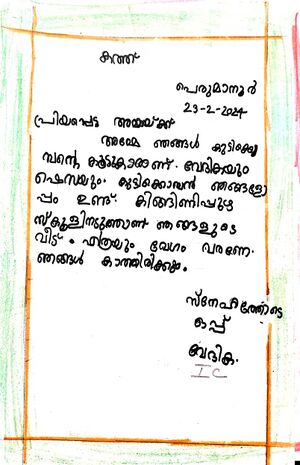 കത്ത്
പെരുമാനൂർ
29-2-2024
പ്രിയപ്പെട്ട അമ്മയ്ക്ക്
അമ്മേ ഞങ്ങൾ കുട്ടിക്കൊ
മ്പന്റെ കൂട്ടുകാരാണ്. വേദികയും
ഷെസയും. കുട്ടിക്കൊമ്പൻ ഞങ്ങളോ
പ്പം ഉണ്ട്. കിങ്ങിണിപ്പുഴ
സ്കൂളിനടുത്താണ് ഞങ്ങളുടെ
വീട്. എത്രയും വേഗം വരണേ.
ഞങ്ങൾ കാത്തിരിക്കും.
സ്നേഹത്തോടെ
ഒപ്പ്
വേദിക.
I C